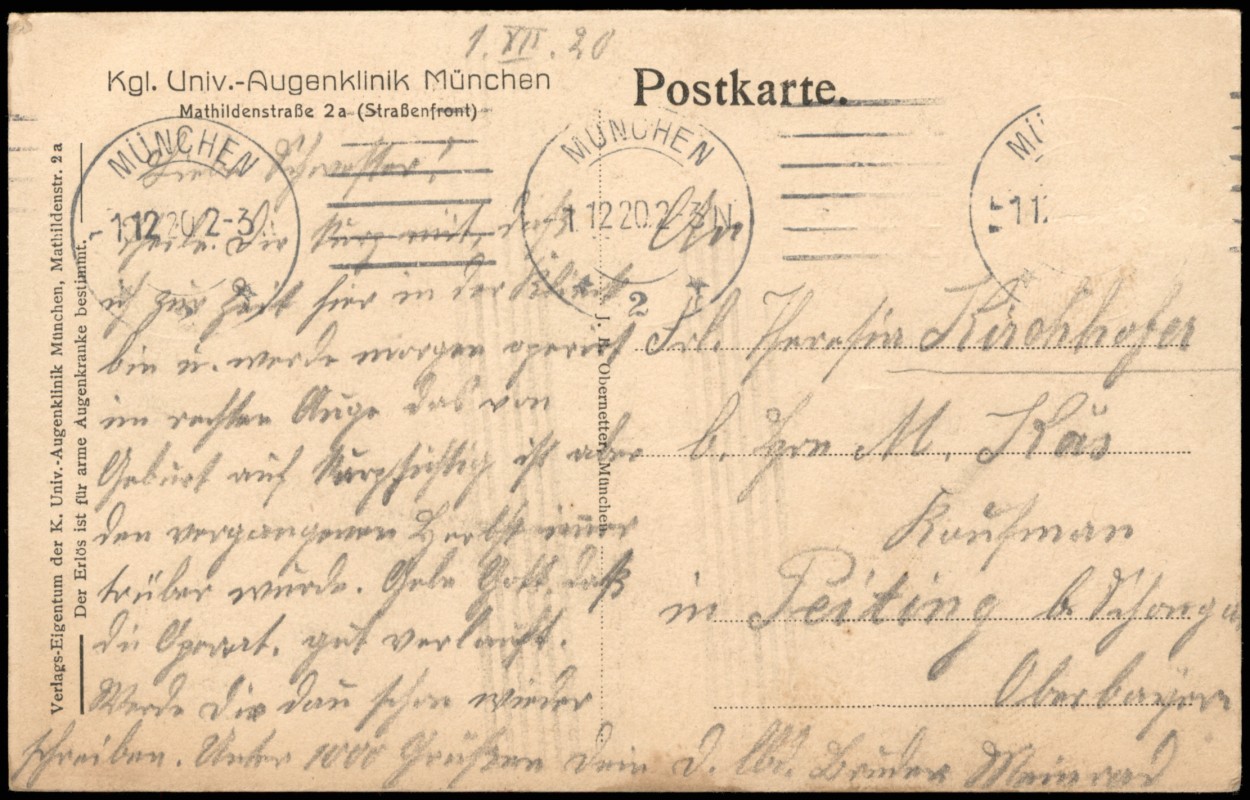 1. XII. 20
Kgl. Univ.-Augenklinik München
Mathildenstraße 2a (Straßenfront)
Postkarte.
Verlags-Eigentum der K. Univ.-Augenklinik München, Mathildenstr. 2a
Der Erlös ist für arme Augenkranke bestimmt.
J. B. Obernetter, München
MÜNCHEN
1.12.20. 2-3 N
MÜNCHEN
1.12.20. 2-3 N
2
MÜ
1.12
Liebe Schwester!
Theile Dir kurz mit, daß
ich zur Zeit hier in der Klinik
bin u. werde morgen operiert
im rechten Auge das von
Geburt auf kurzsichtig ist aber
den vergangenen Herbst immer
trüber wurde. Gebe Gott, daß
die Operat. gut verlauft.
Werde Dir dan schon wieder
schreiben. Unter 1000 Grüßen Dein d. lbd. Bruder Meinrad
An
Frl. Theresia Kirchhofer
b. Hrn M. Käs
Kaufman
in Peiting b. Schongau
Oberbayern